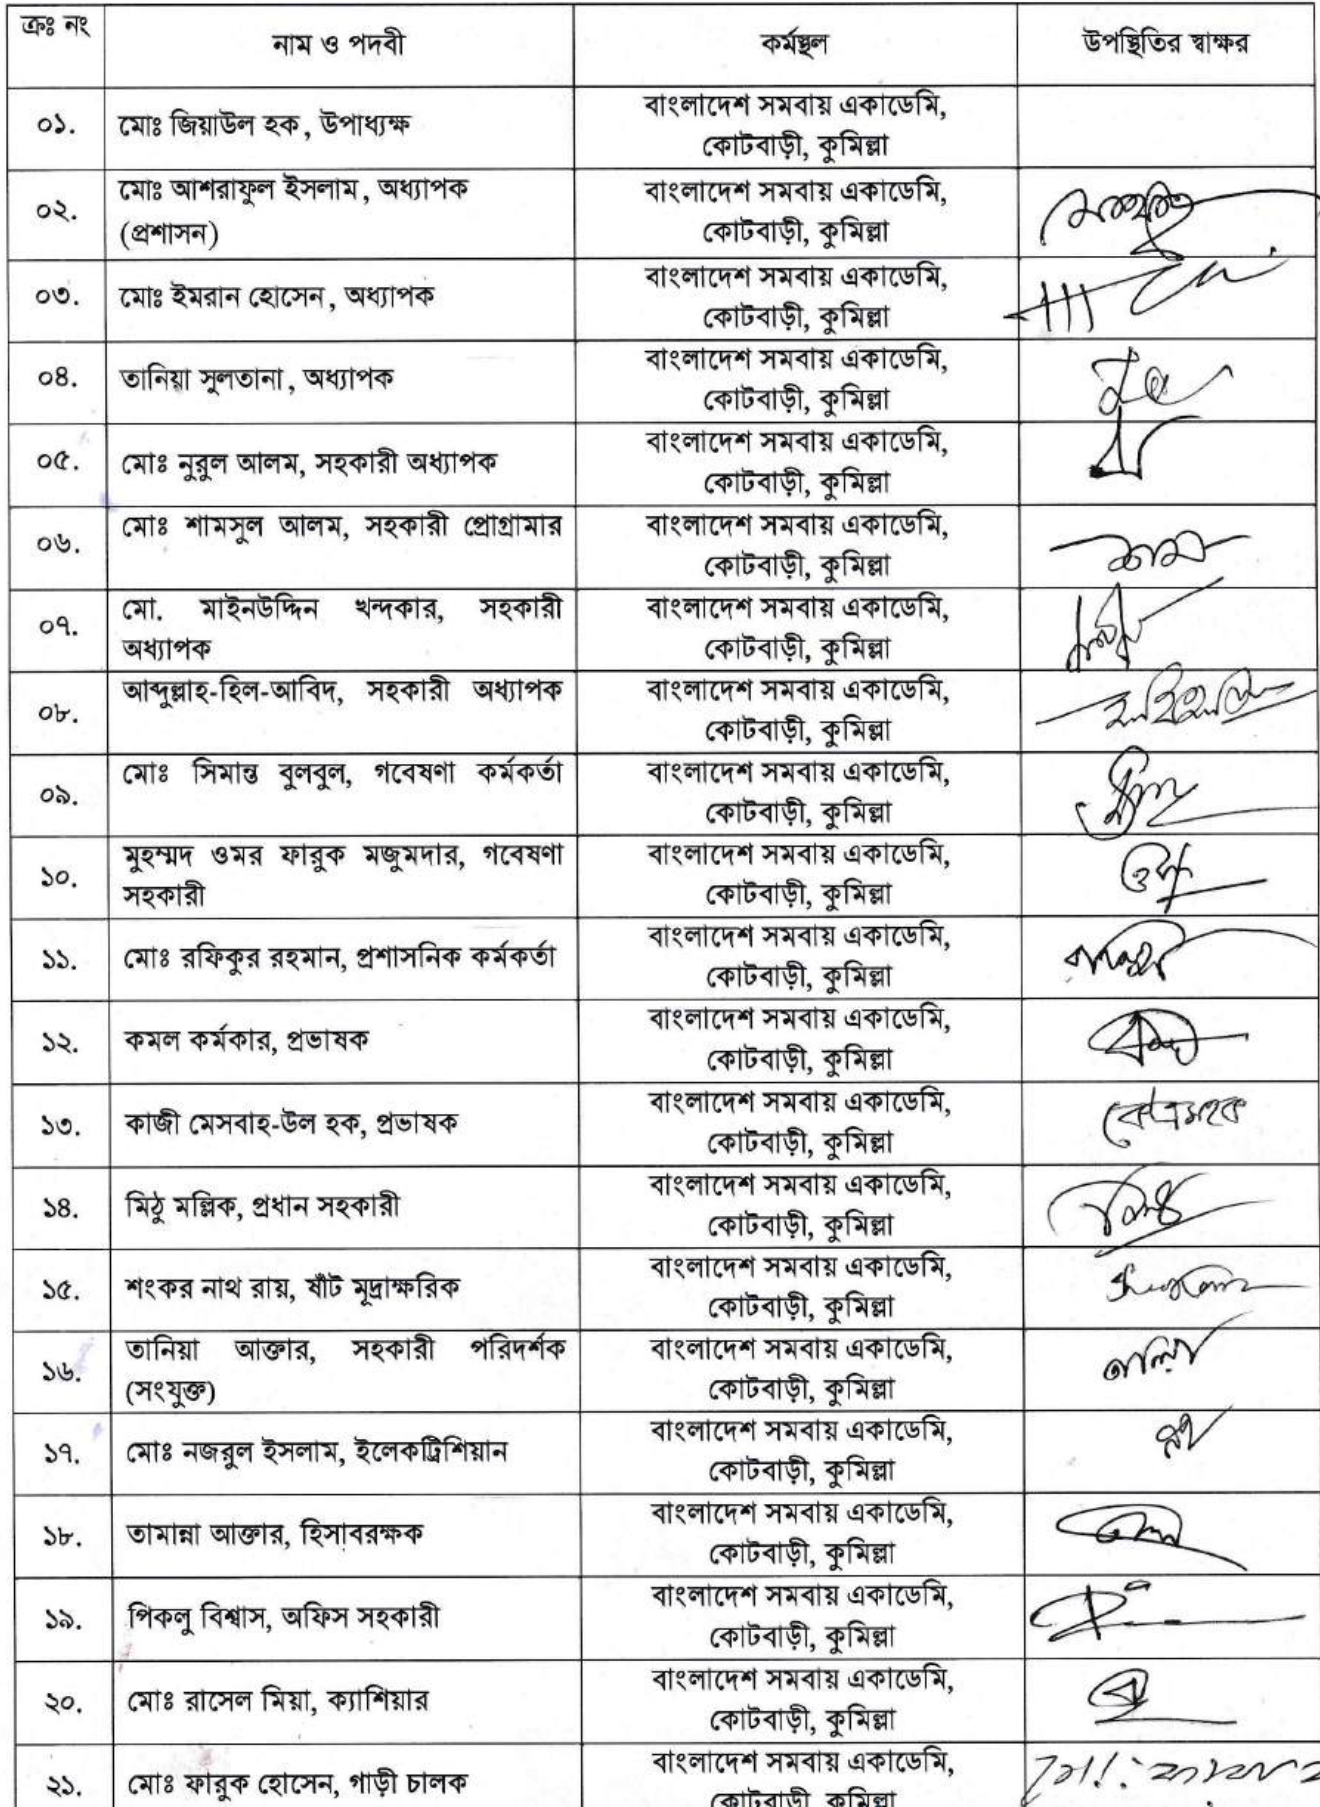 ক্রঃ নং
নাম ও পদবী
কর্মস্থল
উপস্থিতির স্বাক্ষর
০১.
মোঃ জিয়াউল হক, উপাধ্যক্ষ
বাংলাদেশ সমবায় একাডেমি,
কোটবাড়ী, কুমিল্লা
০২.
মোঃ আশরাফুল ইসলাম, অধ্যাপক
(প্রশাসন)
বাংলাদেশ সমবায় একাডেমি,
কোটবাড়ী, কুমিল্লা
০৩.
মোঃ ইমরান হোসেন, অধ্যাপক
বাংলাদেশ সমবায় একাডেমি,
কোটবাড়ী, কুমিল্লা
০৪.
তানিয়া সুলতানা, অধ্যাপক
বাংলাদেশ সমবায় একাডেমি,
কোটবাড়ী, কুমিল্লা
০৫.
মোঃ নুরুল আলম, সহকারী অধ্যাপক
বাংলাদেশ সমবায় একাডেমি,
কোটবাড়ী, কুমিল্লা
০৬.
মোঃ শামসুল আলম, সহকারী প্রোগ্রামার
বাংলাদেশ সমবায় একাডেমি,
কোটবাড়ী, কুমিল্লা
০৭.
মো. মাইনউদ্দিন খন্দকার, সহকারী
অধ্যাপক
বাংলাদেশ সমবায় একাডেমি,
কোটবাড়ী, কুমিল্লা
০৮.
আব্দুল্লাহ-হিল-আবিদ, সহকারী অধ্যাপক
বাংলাদেশ সমবায় একাডেমি,
কোটবাড়ী, কুমিল্লা
০৯.
মোঃ সিমান্ত বুলবুল, গবেষণা কর্মকর্তা
বাংলাদেশ সমবায় একাডেমি,
কোটবাড়ী, কুমিল্লা
১০.
মুহম্মদ ওমর ফারুক মজুমদার, গবেষণা
সহকারী
বাংলাদেশ সমবায় একাডেমি,
কোটবাড়ী, কুমিল্লা
১১.
মোঃ রফিকুর রহমান, প্রশাসনিক কর্মকর্তা
বাংলাদেশ সমবায় একাডেমি,
কোটবাড়ী, কুমিল্লা
১২.
কমল কর্মকার, প্রভাষক
বাংলাদেশ সমবায় একাডেমি,
কোটবাড়ী, কুমিল্লা
১৩.
কাজী মেসবাহ-উল হক, প্রভাষক
বাংলাদেশ সমবায় একাডেমি,
কোটবাড়ী, কুমিল্লা
১৪.
মিঠু মল্লিক, প্রধান সহকারী
বাংলাদেশ সমবায় একাডেমি,
কোটবাড়ী, কুমিল্লা
১৫.
শংকর নাথ রায়, ষাঁট মূদ্রাক্ষরিক
বাংলাদেশ সমবায় একাডেমি,
কোটবাড়ী, কুমিল্লা
১৬.
তানিয়া আক্তার, সহকারী পরিদর্শক
(সংযুক্ত)
বাংলাদেশ সমবায় একাডেমি,
কোটবাড়ী, কুমিল্লা
১৭.
মোঃ নজরুল ইসলাম, ইলেকট্রিশিয়ান
বাংলাদেশ সমবায় একাডেমি,
কোটবাড়ী, কুমিল্লা
১৮.
তামান্না আক্তার, হিসাবরক্ষক
বাংলাদেশ সমবায় একাডেমি,
কোটবাড়ী, কুমিল্লা
১৯.
পিকলু বিশ্বাস, অফিস সহকারী
বাংলাদেশ সমবায় একাডেমি,
কোটবাড়ী, কুমিল্লা
২০.
মোঃ রাসেল মিয়া, ক্যাশিয়ার
বাংলাদেশ সমবায় একাডেমি,
কোটবাড়ী, কুমিল্লা
২১.
মোঃ ফারুক হোসেন, গাড়ী চালক
বাংলাদেশ সমবায় একাডেমি,
কোটবাড়ী, কুমিল্লা